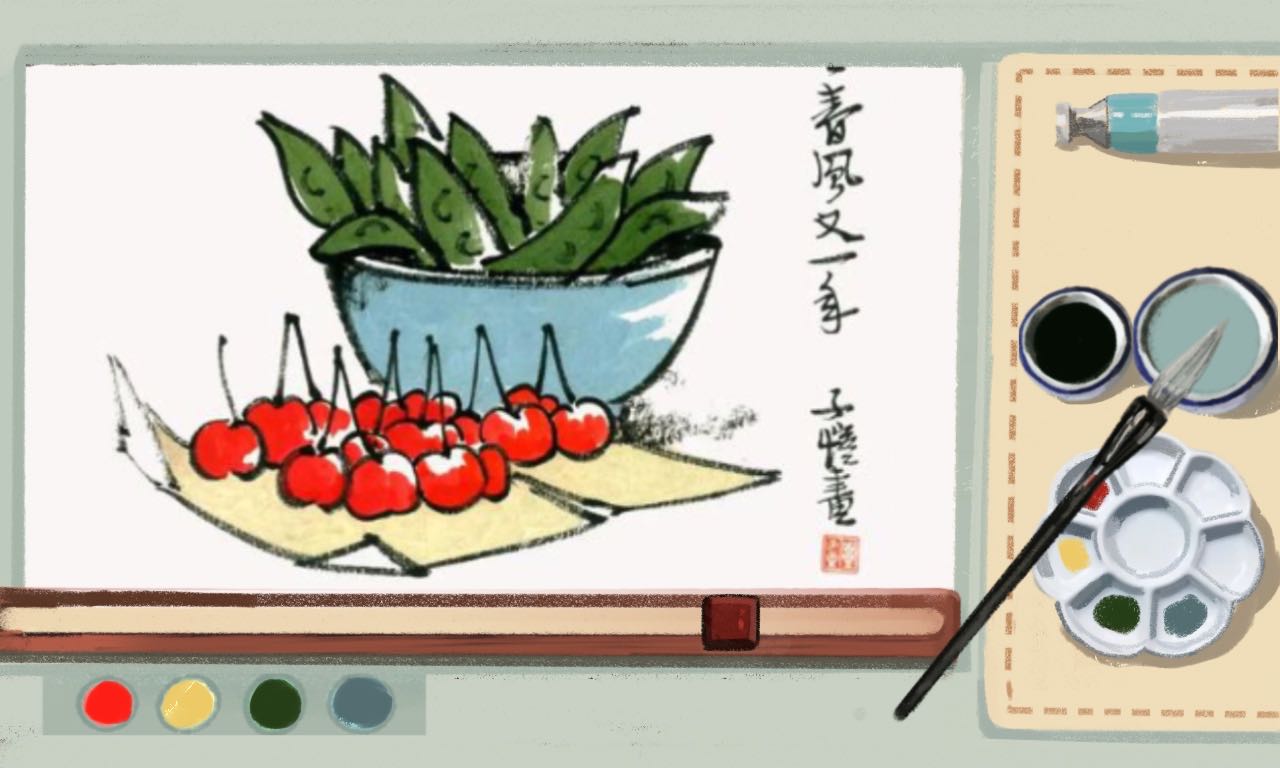 春風又一年
子愷畫